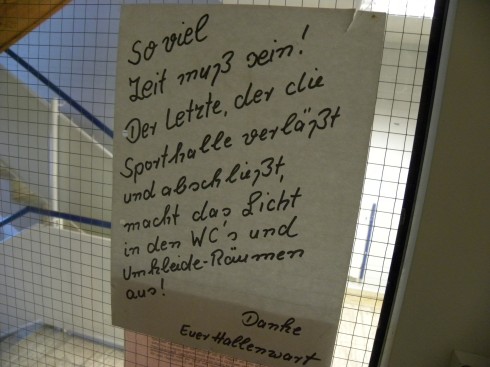 So viel
Zeit muß sein!
Der Letzte, der die
Sporthalle verläßt
und abschließt,
macht das Licht
in den WC's und
Umkleide-Räumen
aus!
Danke
Euer Hallenwart